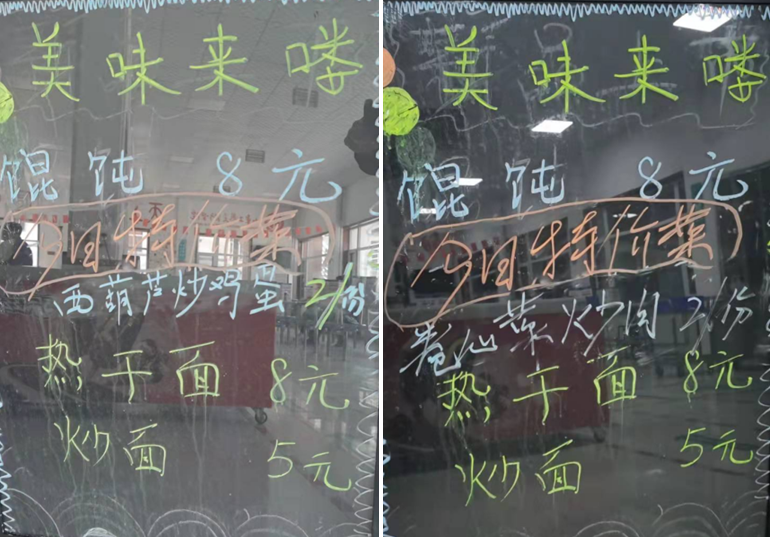 美味来喽
馄饨 8元
今日特价菜
西葫芦炒鸡蛋 2/份
热干面 8元
炒面 5元
美味来喽
馄饨 8元
今日特价菜
卷心菜炒肉 2/份
热干面 8元
炒面 5元